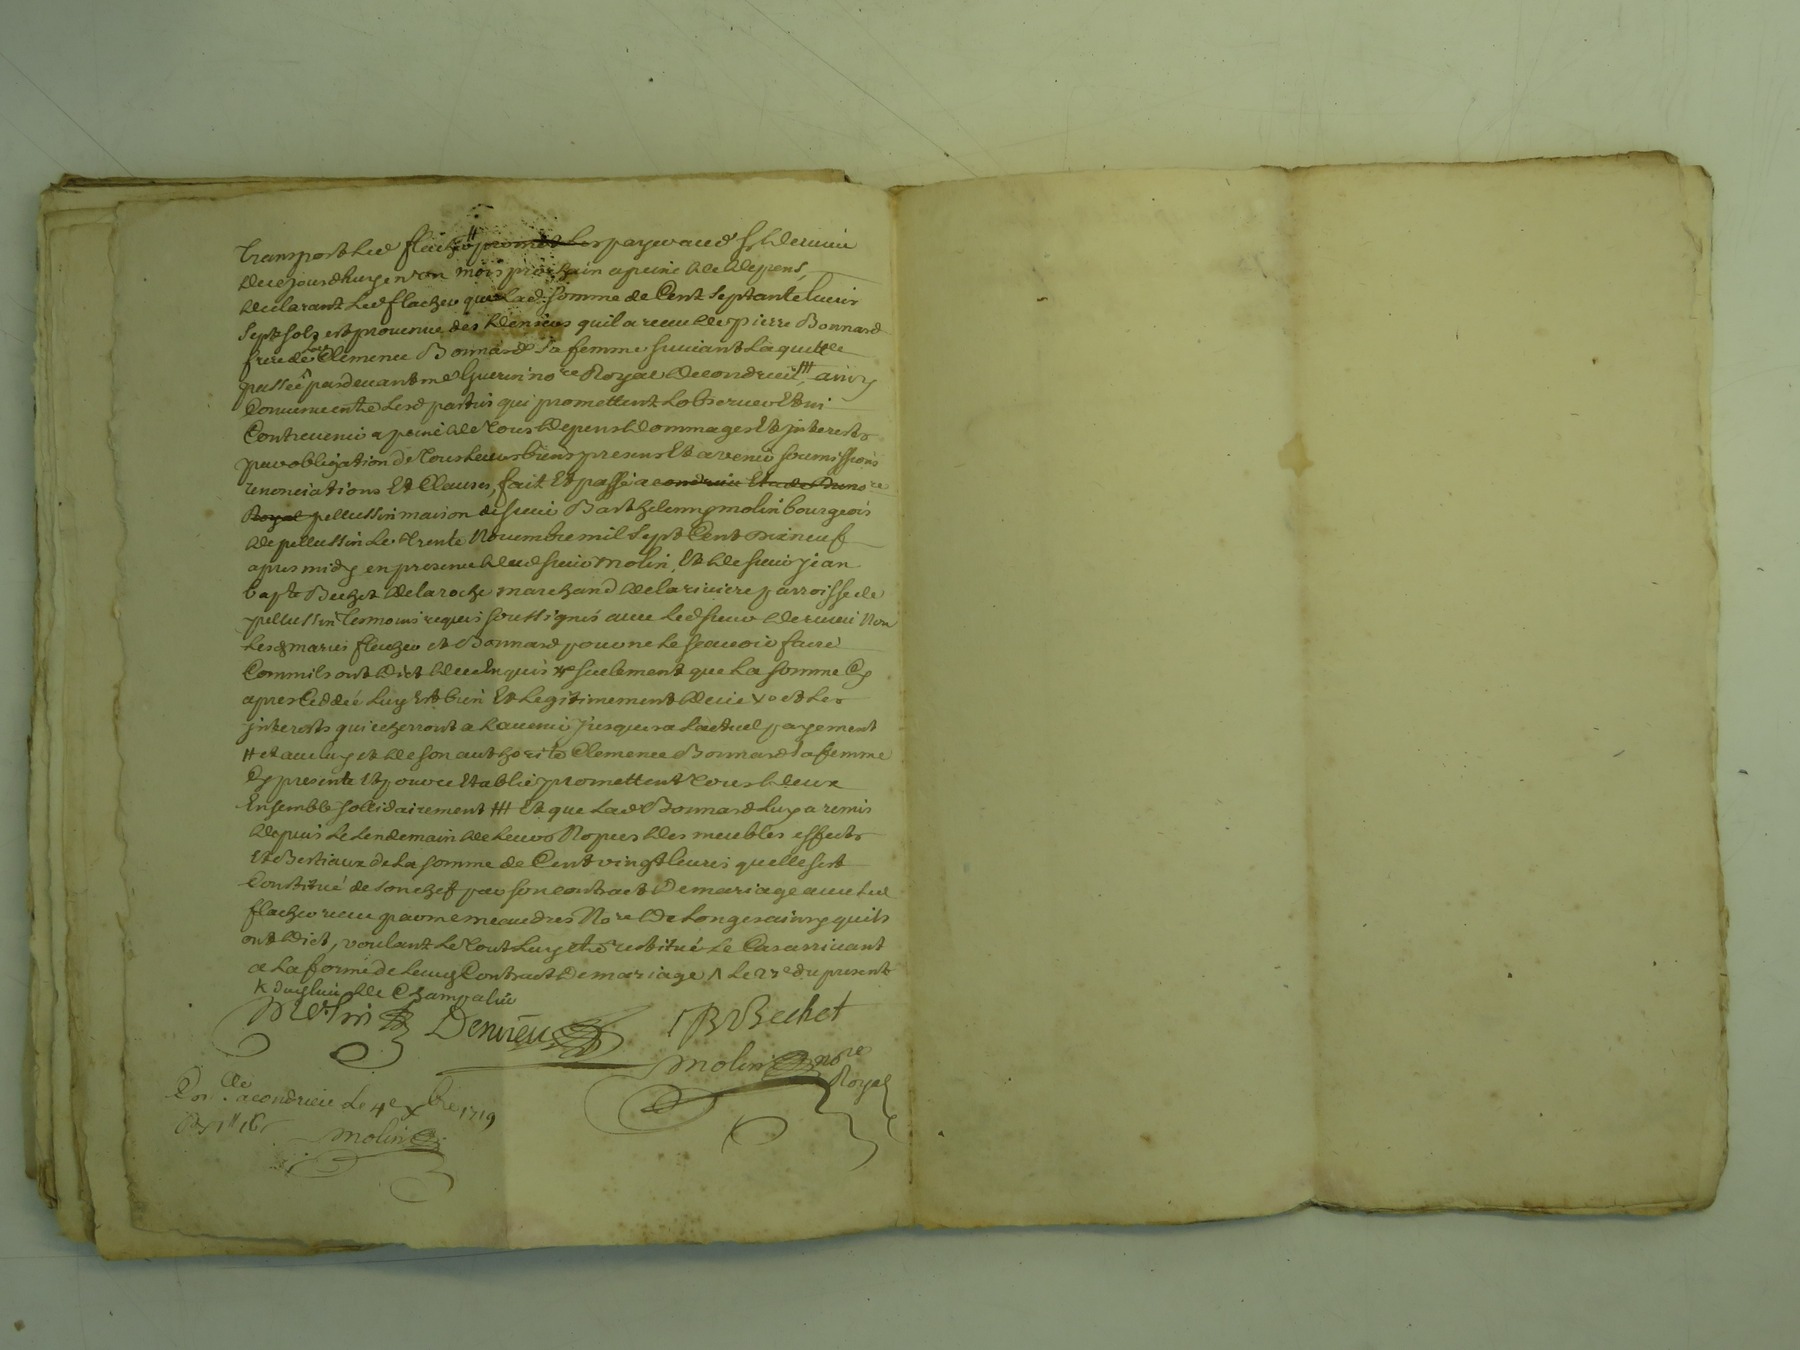 transport led flacher # promet les payer aud sr Dervieu
de ce jourdhuy en un mois prochain a peine de depens,
declarant led flacher que lad somme de Cent septante livres
sept sols est provenue des deniers quil a receu de pierre Bonnard
frere de lad Clemence Bonnard sa femme suivant la quitte
passée pardevant me Guerin nore Royal de condrieu ### ainsy
Convenu entre lesd parties qui promettent l observer Et ni
Contrevenir a peine de tous depens dommages Et jnterests
par obligation de tous leurs biens presens Et avenir soumissions
renonciations Et Clauses, fait Et passé a condrieu Etude du nore
Royal pellussin maison de sieur Barthelemy molin bourgeois
de pellussin le trente Novembre mil sept Cent dixneuf
apres midy en presence dud sieur molin, Et de sieur jean
bapte Bechet delaroche marchand de la riviere parroisse de
pellussin tesmoins requis soussignés avec led sieur dervieu Non
lesd mariés flacher et Bonnard pour ne le scavoir faire
Comm ils ont dict de ce Enquis seulement que la somme Cy
apres Ceddée luy Est bien Et legitimement deue et les
jnterests qui echerront a l avenir jusques a l actuel payement
# et avec luy et de son authorité Clemence Bonnard sa femme
Cy presente Et pour ce Establie promettent tous deux
Ensemble sollidairement ### Et que lad Bonnard luy a remis
depuis le lendemain de leurs Nopces des meubles effects
Et Bestiaux de la somme de Cent vingt livres quelle sest
Constitué de son chef par son contract De mariage avec led
flacher receu par me meaudres Nore De Longes ainsy quils
ont dict, voulant le tout luy etre restitué le Cas arrivant
a la forme de leur Contract De mariage le du present
de Champalin
Molin Dervieu JB Bechet
molin nore
Royal
Conlle a condrieu le 4e xbre 1719
molin